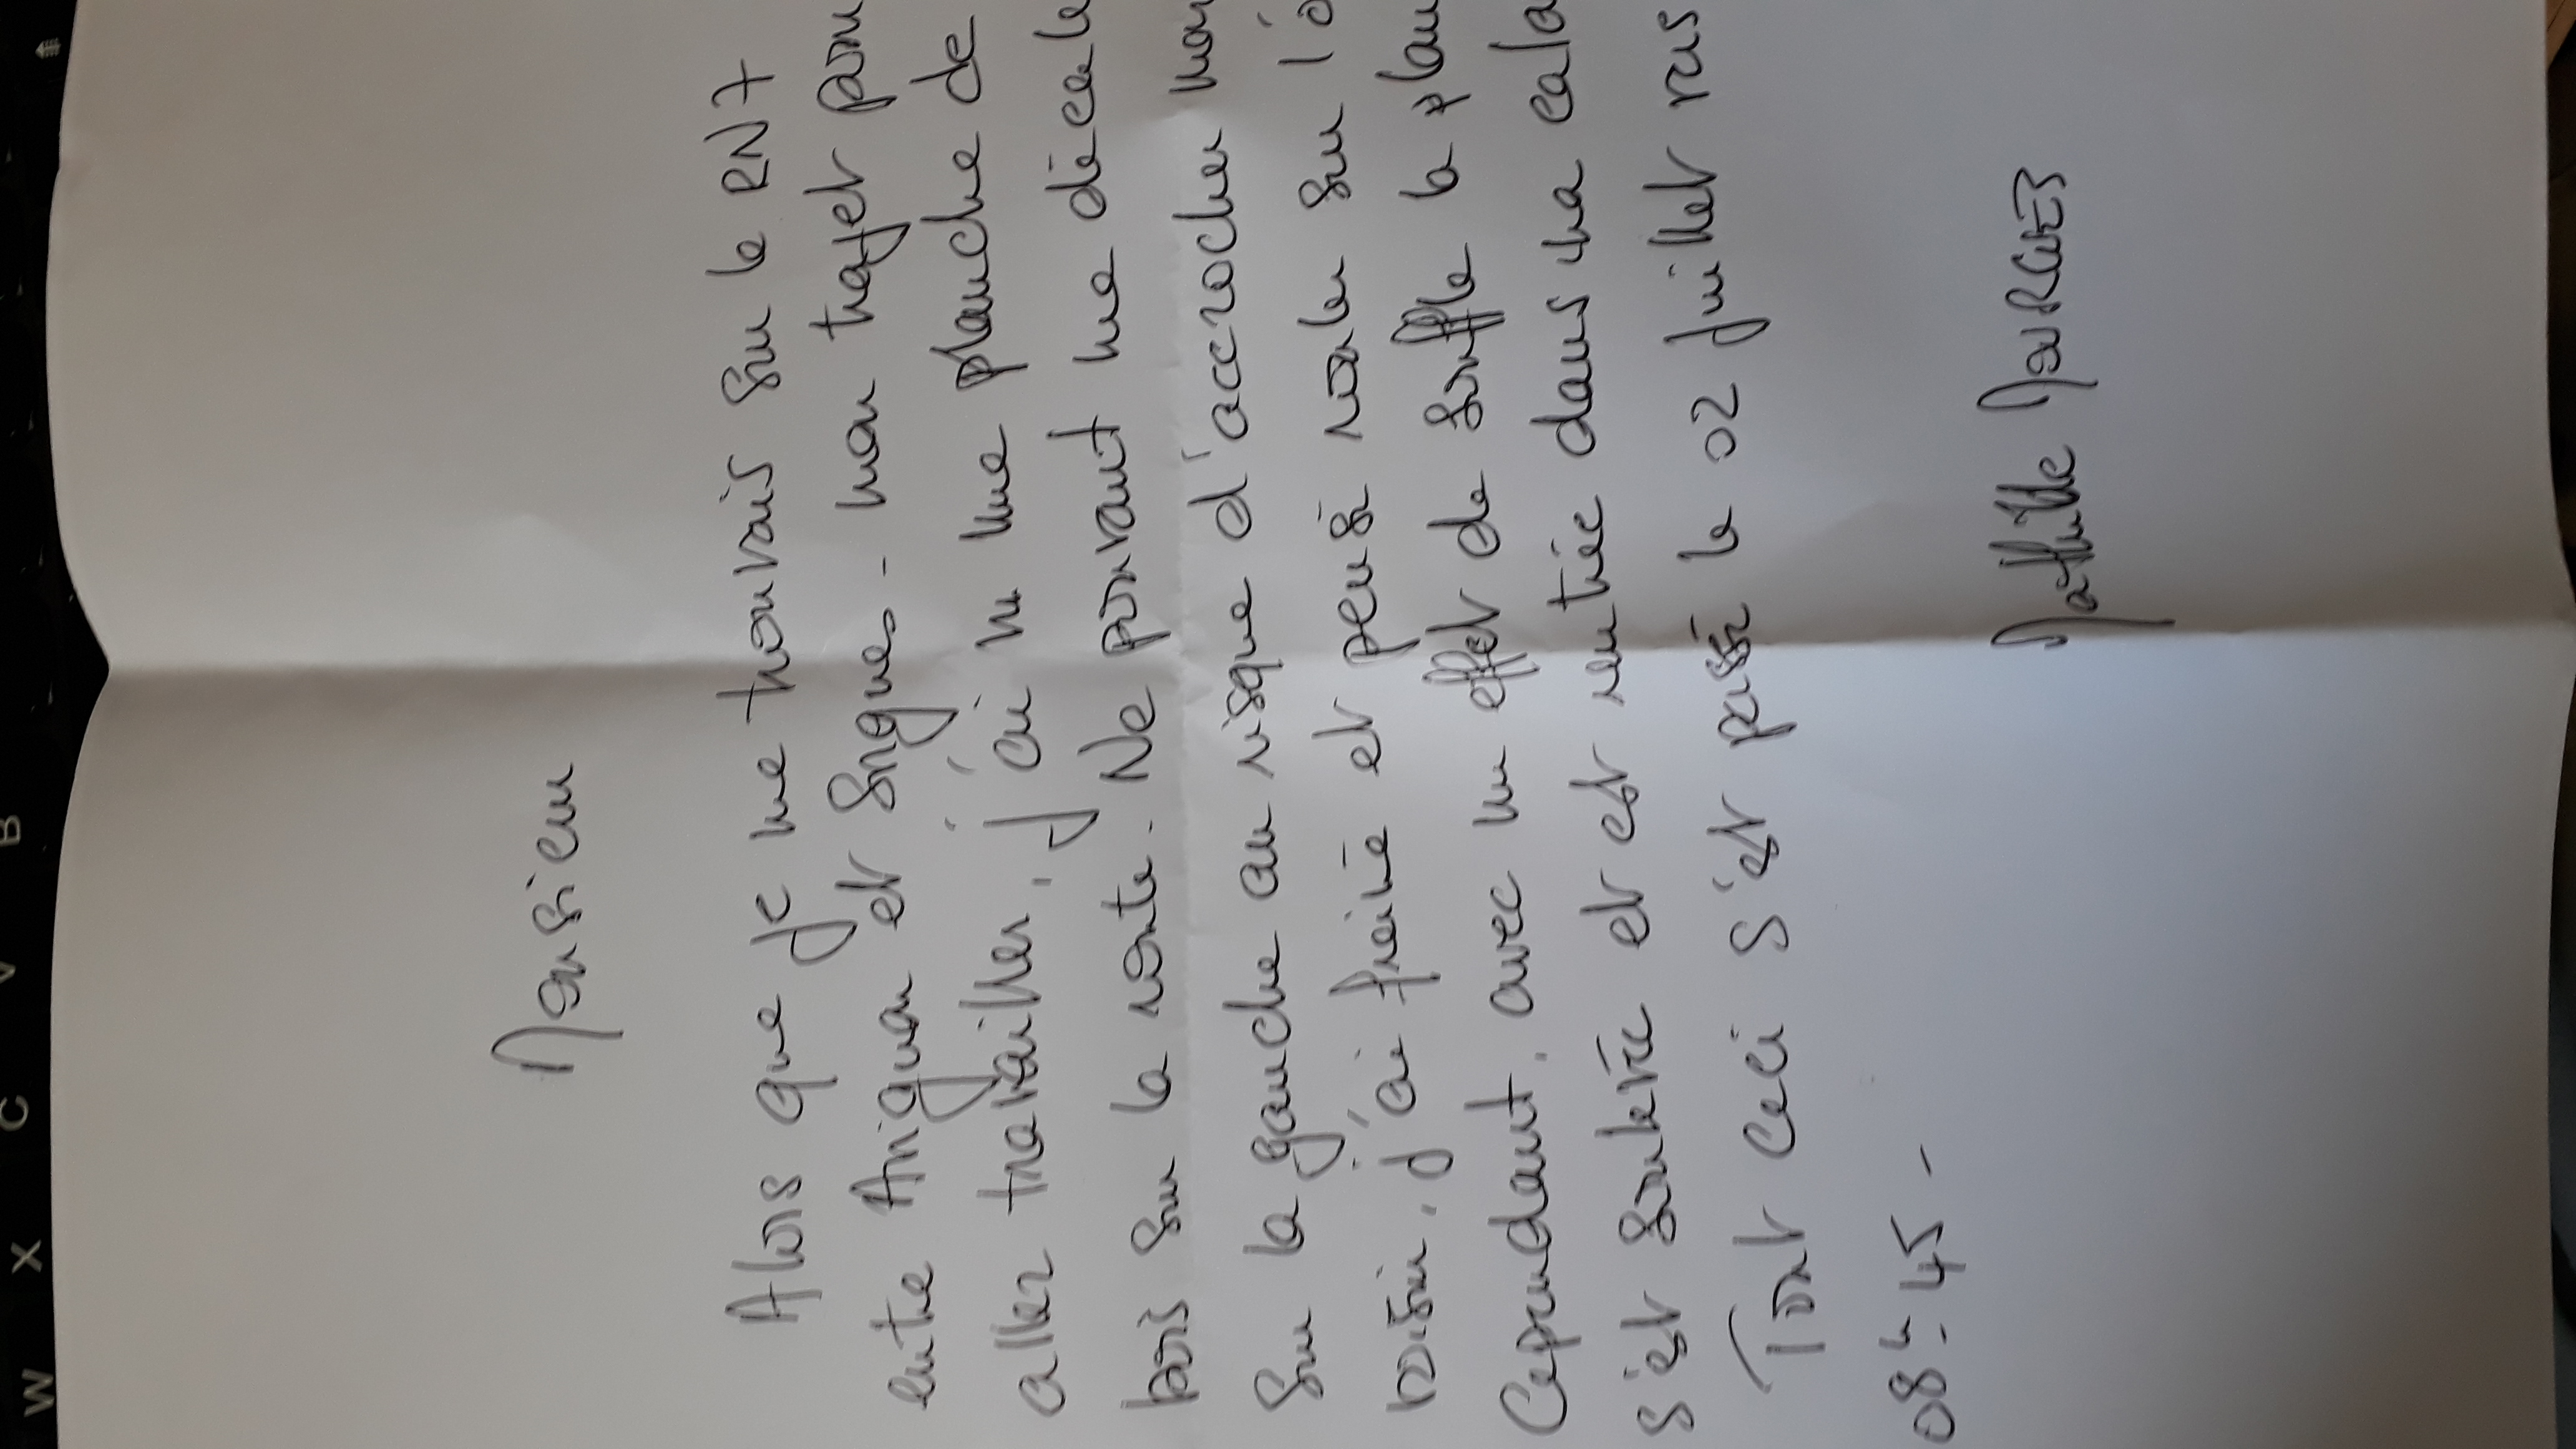 Monsieur
Alors que je me trouvais sur la RN7
entre Avignon et Sorgues - mon trajet pour
aller travailler, j'ai vu une planche de
bois sur la route. Ne pouvant me décale
sur la gauche au risque d'accrocher mon
voisin, j'ai freiné et pensé rouler sur l'o
Cependant, avec un effet de souffle la plan
s'est soulevée et est rentrée dans ma cala
Tout ceci s'est passé le 02 juillet
08h45 -
Mathilde
W X C V B